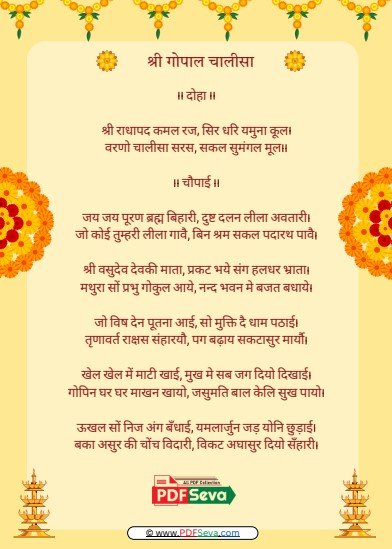 श्री गोपाल चालीसा
॥ दोहा ॥
श्री राधापद कमल रज, सिर धरि यमुना कूल।
वरणो चालीसा सरस, सकल सुमंगल मूल॥
॥ चौपाई ॥
जय जय पूरण ब्रह्म बिहारी, दुष्ट दलन लीला अवतारी।
जो कोई तुम्हरी लीला गावै, बिन श्रम सकल पदारथ पावै।
श्री वसुदेव देवकी माता, प्रकट भये संग हलधर भ्राता।
मथुरा सों प्रभु गोकुल आये, नन्द भवन मे बजत बधाये।
जो विष देन पूतना आई, सो मुक्ति दै धाम पठाई।
तृणावर्त राक्षस संहारयौ, पग बढ़ाय सकटासुर मार्यौ।
खेल खेल में माटी खाई, मुख मे सब जग दियो दिखाई।
गोपिन घर घर माखन खायो, जसुमति बाल केलि सुख पायो।
ऊखल सों निज अंग बँधाई, यमलार्जुन जड़ योनि छुड़ाई।
बका असुर की चोंच विदारी, विकट अघासुर दियो सँहारी।
All PDF Collection
PDF Seva
© www.PDFSeva.com